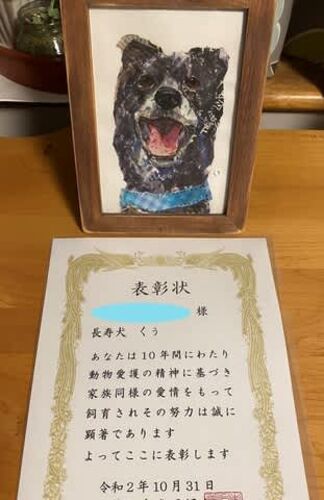 表彰状
様
長寿犬 くぅ
あなたは10年間にわたり
動物愛護の精神に基づき
家族同様の愛情をもって
飼育されその努力は誠に
顕著であります
よってここに表彰します
令和2年10月31日